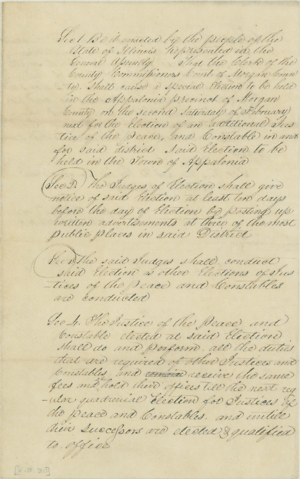 Sec 1 Be it enacted by the people of the
State of Illinois Represented in the
General Assembly, That the Clerk of the
County Commissioners Court of Morgan Coun
ty Shall cause a Special Election to be held
in the Appalonia precinct of Morgan
County on the second Saturday of February
next for the election of an additional Jus
tice of the peace and Constable in and
for said district said Election to be
held in the Town of Appalonia
Sec 2. The Judges of Election shall give
notice of said Election at least ten days
before the day of Election by posting up
written advertisements at three of the most
public places in said District
Sec 3 The said Judges shall conduct
said Election as other Elections of Jus
tices of the Peace and Constables
are conducted
Sec 4. The Justice of the Peace and
Constable elected at said Election
shall do and perform all the duties
that are required of other Justices and
Constables and receive the same
fees and hold their offices till the next reg
ular quadrennial Election for Justices of
the peace and Constables and until
their Successors are elected & qualified
to office